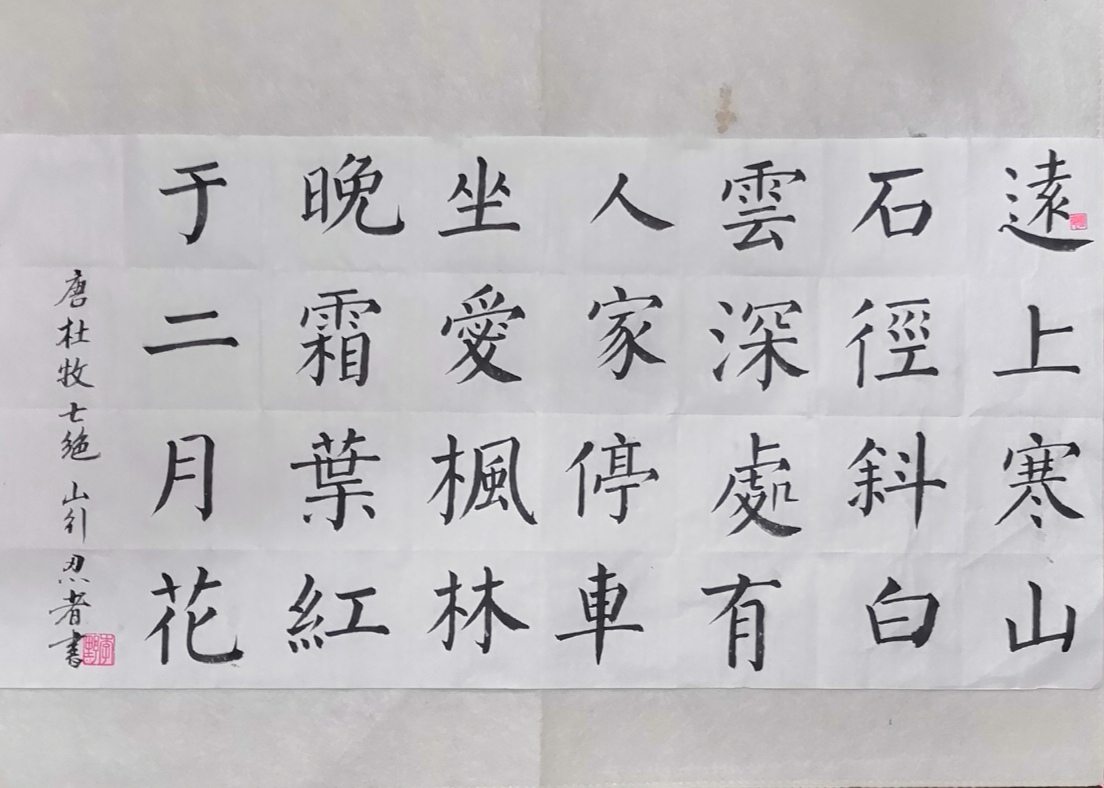 遠上寒山
石徑斜白
雲深處有
人家停車
坐愛楓林
晚霜葉紅
于二月花
唐杜牧七絕山行忍者書